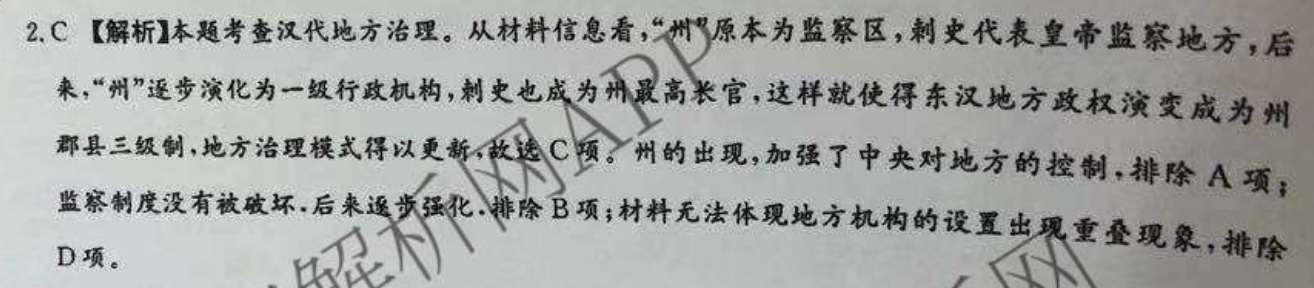 2.C 【解析】本题考查汉代地方治理。从材料信息看,“州”原本为监察区,刺史代表皇帝监察地方,后
来,“州”逐步演化为一级行政机构,刺史也成为州最高长官,这样就使得东汉地方政权演变成为州
郡县三级制,地方治理模式得以更新,故选C项。州的出现,加强了中央对地方的控制,排除A项;
监察制度没有被破坏,后来逐步强化,排除B项;材料无法体现地方机构的设置出现重叠现象,排除
D项。
解析网APP